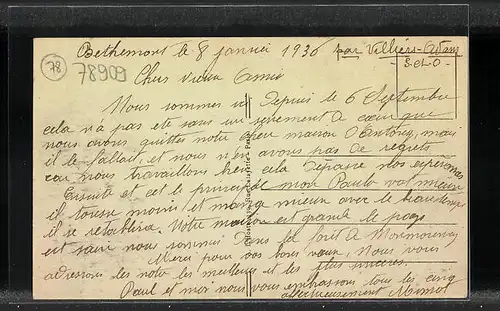 Bethemont le 8 janvier 1936 par Villiers-Adam
S-et-O
78
78909
Chers vieux Amis
Nous sommes ici depuis le 6 Septembre
cela n'a pas ete sans un serrement de cœur que
nous avons quittés notre maison d'Antony, mais
il le fallait, et nous n'en avons pas de regrets
car nous travaillons bien cela dépasse nos espérances
Ensuite et cet le principal mon Paulo vat mieux
il tousse moins et mange mieux avec le beau temps
il se retablira. Notre maison est grande le pays
est sain nous sommes dans la forêt de Montmorency
Merci pour vos bons vœux, Nous vous
adressons les notre les meilleurs et les plus sincères.
Paul et moi nous vous embrassons tous les cinq
affectueusement